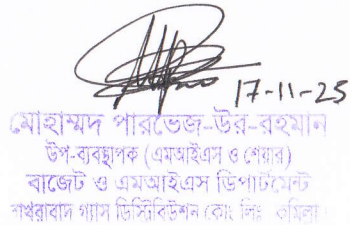 17-11-25
মোহাম্মদ পারভেজ-উর-রহমান
উপ-ব্যবস্থাপক (এমআইএস ও শেয়ার)
বাজেট ও এমআইএস ডিপার্টমেন্ট
গ্যাস ডিস্ট্রিবিউশন কোং লিঃ কুমিল্লা